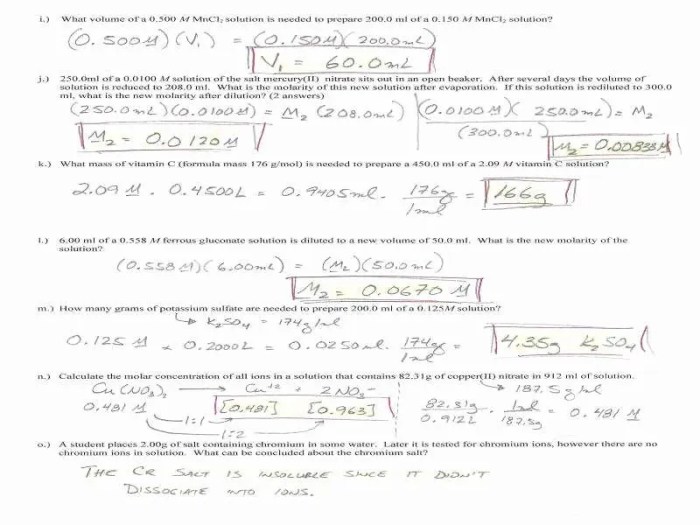 i.) What volume of a 0.500 M MnCl₂ solution is needed to prepare 200.0 ml of a 0.150 M MnCl₂ solution?
(0.500M)(V₁) = (0.150M)(200.0mL)
V₁ = 60.0mL
j.) 250.0ml of a 0.0100 M solution of the salt mercury(II) nitrate sits out in an open beaker. After several days the volume of
solution is reduced to 208.0 ml. What is the molarity of this new solution after evaporation. If this solution is rediluted to 300.0
ml, what is the new molarity after dilution? (2 answers)
(250.0mL)(0.0100M) = M₂ (208.0mL) (0.0100M)(250.0mL) = M₂
(300.0mL)
M₂ = 0.0120M M₂ = 0.00833M
k.) What mass of vitamin C (formula mass 176 g/mol) is needed to prepare a 450.0 ml of a 2.09 M vitamin C solution?
2.09 M · 0.4500L = 0.9405mol · 176g = 166g
1mol
l.) 6.00 ml of a 0.558 M ferrous gluconate solution is diluted to a new volume of 50.0 ml. What is the new molarity of the
solution?
(0.558M)(6.00mL) = (M₂)(50.0mL)
M₂ = 0.0670 M
m.) How many grams of potassium sulfate are needed to prepare 200.0 ml of a 0.125M solution?
K₂SO₄ = 174g/mol
0.125 M × 0.2000L = 0.0250mol · 174g = 4.35g K₂SO₄
1mol
n.) Calculate the molar concentration of all ions in a solution that contains 82.31g of copper(II) nitrate in 912 ml of solution.
Cu(NO₃)₂ → Cu⁺² + 2NO₃⁻ 187.5g/mol
0.481 M [0.481] [0.963] 82.31g · 1mol = 0.481 M
0.912L 187.5g
1:1
1:2
o.) A student places 2.00g of salt containing chromium in some water. Later it is tested for chromium ions, however there are no
chromium ions in solution. What can be concluded about the chromium salt?
THE CR SALT IS INSOLUBLE SINCE IT DIDN'T
DISSOCIATE INTO IONS.